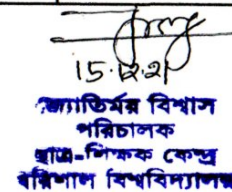 15.12.21
জ্যোতির্ময় বিশ্বাস
পরিচালক
ছাত্র-শিক্ষক কেন্দ্র
বরিশাল বিশ্ববিদ্যালয়